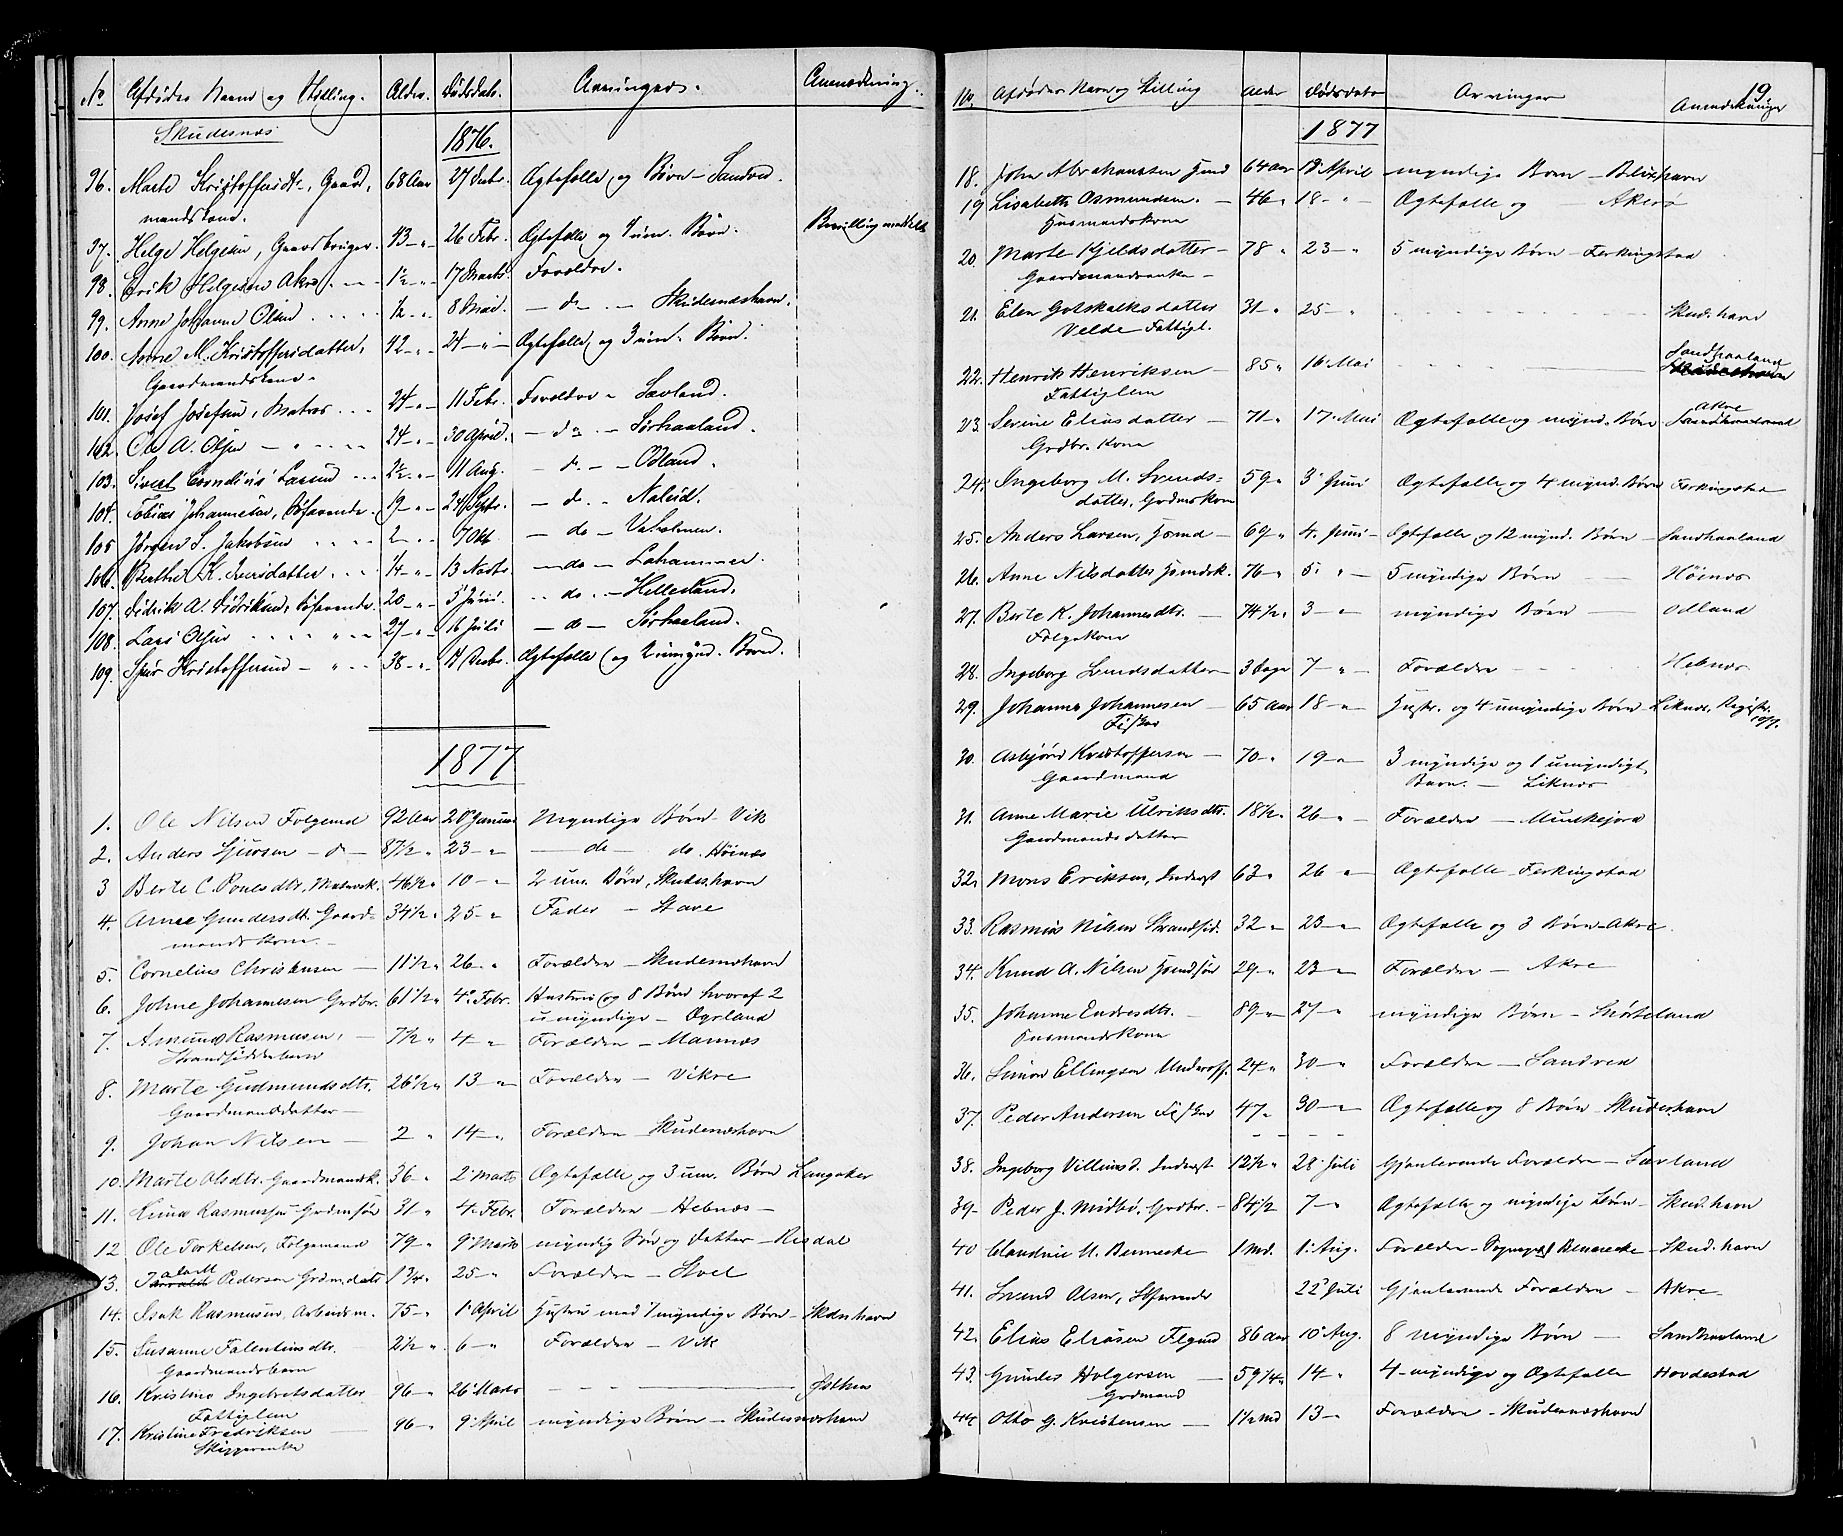 No Afdødes Navn og Stilling. Alder. Dødsdato. Arvinger. Anmærkning.
Skudesnæs 1876.
96. Marte Kristoffersdtr, Gaard- 68 Aar 27 Febr. Ægtefælle og Børn - Sandve
mandskone.
97. Helge Helgesen, Gaardbruger. 43 - " 26 Febr. Ægtefælle og 1 um. Barn. Bevilling meddelt
98. Erik Helgesen Akre 1½ - " 17 Marts Forældre.
99. Anne Johanne Olsen ½ - " 8 Mai. - do - Skudesneshavn.
100. Anne M. Kristoffersdatter, 42 - " 24 - " - Ægtefælle og 3 um. Børn.
Gaardmandskone.
101. Josef Josefsen, Matros 24 - " 11 Febr. Forældre - Sævland.
102. Ole A. Olsen - " 24 - " 30 April. - do - Sørhaaland.
103. Sivert Cornelius Larsen 2½ - " 11 Aug. - do - Odland.
104. Tobias Johannesen, Søfarende. 19 - " 24 Septr. - do - Naleid.
105 Jørgen S. Jakobsen 2 - " 7 Okt. - do - Vaholmen.
106. Berthe K. Iversdatter 14 - " 13 Marts - do - Lahammer.
107. Didrik A. Didriksen, Søfarende 20 - " 5 Juni. - do - Hellesland.
108. Lars Olsen 27 - " 16 Juli - do - Sørhaaland.
109. Kristoffersen - " 38 - " 17 Decbr. Ægtefælle og 2 umynd. Børn.
1877
1. Ole Nilsen Følgemd 92 Aar 20 Januar Myndige Børn - Vik
2. Anders Sjursen - do - 87½ " 23 - " - do - do. Høinæs
3 Berte C. Poulsdtr, Matrosk. 46½ " 10 - " 2 um. Børn, Skudeshavn
4. Anne Gundersdtr. Gaard- 34½ " 25 - " Fader - Stave
mandskone.
5. Cornelius Christensen - 11½ " 26 - " Forældre - Skudesneshavn
6. Johne Johannesen Grdbr. 61½ " 4 Febr. Hustru og 8 Børn hvoraf 2
umyndige - Øyrland
7. Amund Rasmusen, - 7½ " 4 - " Forældre - Mannæs
Strandsidderbarn
8. Marte Gudmundsdtr. 26½ " 13 - " Forældre - Vikre
Gaardmandsdatter -
9. Johan Nilsen - 2 " 14 - " Forældre - Skudesneshavn
10. Marte Olsdtr. Gaardmandsk. 36 - " 2 Marts Ægtefælle og 3 um. Børn Langaker
11. Rasmussen Grdmsøn 31 - " 4 Febr. Forældre - Hebnæs -
12 Ole Torkelsen, Følgemand 79 - " 9 Marts myndig Søn og Datter - Risdal
13. Pedersen Grdm.datr 1¾ " 25 - " Forældre - Stol
14. Isak Rasmusen, Arbeidsm. 75 - " 1 April Hustru med 7 myndige Børn - Skdeshavn
15. Susanne Falentinsdtr. 2½ " 6 - " Forældre - Vik
Gaardmandsbarn
16. Kristine Ingebretsdatter 96 - " 26 Marts - - - Jøthen
Fattiglem
17. Kristine Fredriksen - 96 - " 9 April myndige Børn - Skudesneshavn
Skipperenke
19
No. Afdødes Navn og Stilling Alder Dødsdato Arvinger Anmærkninger
1877
18. John Abrahamsen Jomd 64 aar 18 April myndige Børn - Blikshavn
19 Lisabeth Osmundsen. - 46 " 18 - " - Ægtefælle og - Akre
Husmandskone
20. Marte Kjeldsdatter - 78 " 23 - " 5 myndige Børn - Ferkingstad
Gaardmandsenke -
21. Elen Gotskalksdatter 31 - " 25 - " Skud.havn
Velde Fattigl.
22. Henrik Henriksen - 85 " 16 Mai Sandhaaland
Fattiglem
23. Sevine Eliasdatter - 71 - " 17 Mai Ægtefælle og mynd. Børn Akre
Grdbr. Kone
24. Ingeborg M. Svends- 59 " 3 Juni Ægtefælle og 4 mynd. Børn Ferkingstad
datter, Grdmskone
25. Anders Larsen, Jomd - 69 " 4. Juni - Ægtefælle og 12 mynd. Børn - Sandhaaland
26. Anne Nilsdatter Jomdsk. 76 - " 5. " - 5 myndige Børn - Høines
27. Berte K. Johannesdtr. 74½ " 3 - " myndige Børn - Odland
Følgekone
28. Ingeborg Lundsdatter - 3 Dage 7 - " - Forældre - Hebnes
29. Johannes Johannesen - 65 Aar 18 - " Hustr. og 4 umyndige Børn - Liknes, Registr.
Fisker
30. Asbjørn Kristoffersen - 70 - " 19 - " 3 myndige og 1 umyndigt
Gaardmand Barn. - Liknes
31. Anne Marie Ulriksdtr. 18½ " 26 - " Forældre - Munkejord
Gaardmandsdatter
32. Mons Eriksen, Inderst 63 " 26 - " Ægtefælle - Ferkingstad
33. Rasmus Nilsen Strandsid. 32 - " 23 - " Ægtefælle og 3 Børn - Akre.
34. Knud A. Nilsen Jomdsøn 29 - " 23 - " Forældre - Akre
35. Johanne Endresdtr. - 89 - " 27 - " myndige Børn - Snørteland
Husmandskone
36. Simon Ellingsen Underoff. 24 - " 30 - " Forældre - Sandved
37. Peder Andersen Fisker 47 " 30 - " Ægtefælle og 8 Børn - Skudeshavn
38. Ingeborg Villumsd. Inderst 12½ " 28 Juli Gjenlevende Forældre - Sævland
39 - Peder J. Midbø, Grdbr. - 84½ 7 - " Ægtefælle og myndige Børn - Skud.havn
40 Claudine M. Bennecke 1 md. 1 Aug. Forældre - Sogneprest Bennecke - Skud.havn
41. Svend Olsen, Søfarende 22 Juli Gjenlevende Forældre - Akre -
42. Elias Eliasen Flgmd 86 aar 10 Aug. 8 myndige Børn - Sandhaaland
43. Gunder Holgersen - 59¼ " 14 - " 4 myndige og Ægtefælle Hovdestad
Grdmand
44 Otto G. Kristensen - 1½ md 13 - " Forældre - Skudesneshavn